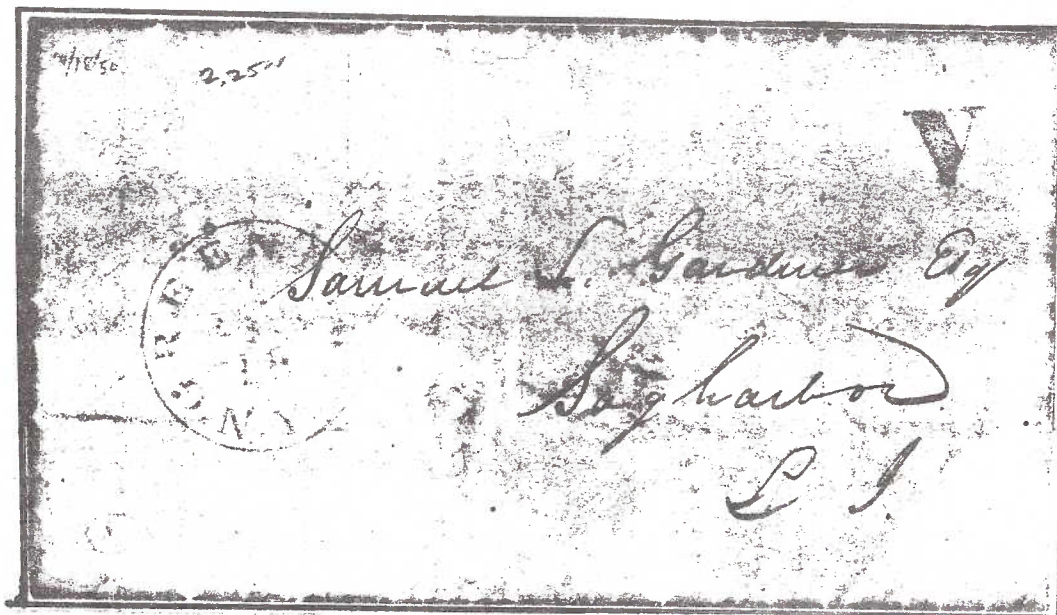 2,25"
V
Samuel L. Gardiner Esq
Sagharbor
L I